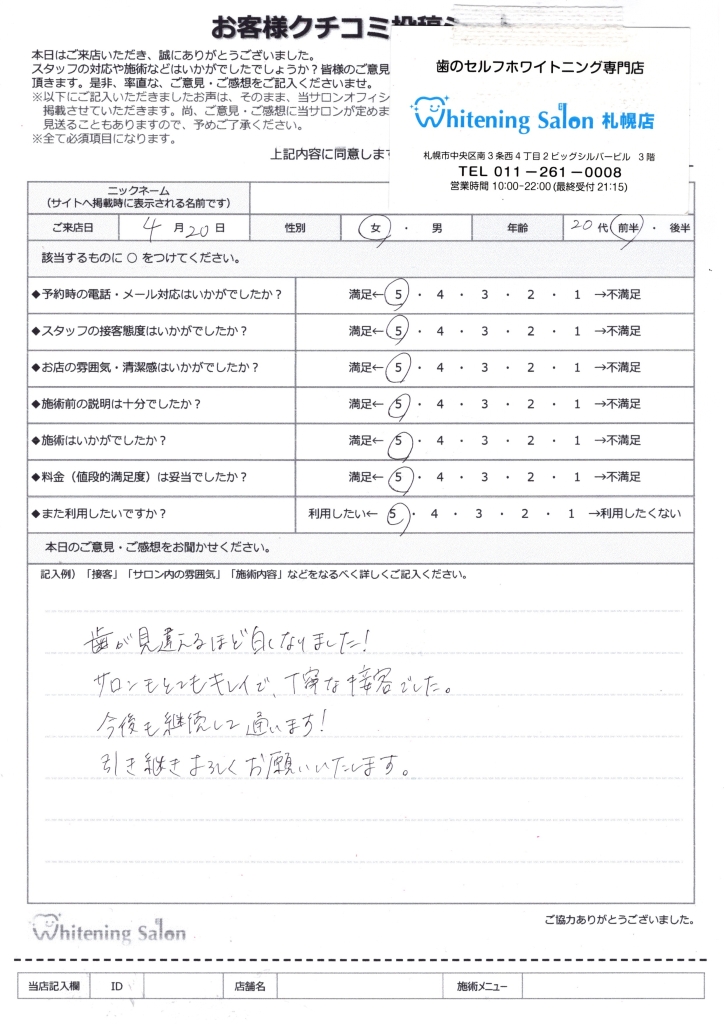 お客様クチコミ投稿シ
本日はご来店いただき、誠にありがとうございました。
スタッフの対応や施術などはいかがでしたでしょうか？皆様のご意見
頂きます。是非、率直な、ご意見・ご感想をご記入くださいませ。
※以下にご記入いただきましたお声は、そのまま、当サロンオフィシ
掲載させていただきます。尚、ご意見・ご感想に当サロンが定めま
見送ることもありますので、予めご了承ください。
※全て必須項目になります。
上記内容に同意します
歯のセルフホワイトニング専門店
Whitening Salon 札幌店
札幌市中央区南3条西4丁目2ビッグシルバービル 3階
TEL 011－261－0008
営業時間 10:00~22:00(最終受付 21:15)
ニックネーム
（サイトへ掲載時に表示される名前です）
ご来店日 4 月 20 日 性別 女 ・ 男 年齢 20 代 前半 ・ 後半
該当するものに ○ をつけてください。
◆予約時の電話・メール対応はいかがでしたか？ 満足← 5 ・ 4 ・ 3 ・ 2 ・ 1 →不満足
◆スタッフの接客態度はいかがでしたか？ 満足← 5 ・ 4 ・ 3 ・ 2 ・ 1 →不満足
◆お店の雰囲気・清潔感はいかがでしたか？ 満足← 5 ・ 4 ・ 3 ・ 2 ・ 1 →不満足
◆施術前の説明は十分でしたか？ 満足← 5 ・ 4 ・ 3 ・ 2 ・ 1 →不満足
◆施術はいかがでしたか？ 満足← 5 ・ 4 ・ 3 ・ 2 ・ 1 →不満足
◆料金（値段的満足度）は妥当でしたか？ 満足← 5 ・ 4 ・ 3 ・ 2 ・ 1 →不満足
◆また利用したいですか？ 利用したい← 5 ・ 4 ・ 3 ・ 2 ・ 1 →利用したくない
本日のご意見・ご感想をお聞かせください。
記入例）「接客」「サロン内の雰囲気」「施術内容」などをなるべく詳しくご記入ください。
歯が見違えるほど白くなりました！
サロンもとてもキレイで、丁寧な接客でした。
今後も継続して通います！
引き継きよろしくお願いいたします。
ご協力ありがとうございました。
Whitening Salon
当店記入欄 ID 店舗名 施術メニュー